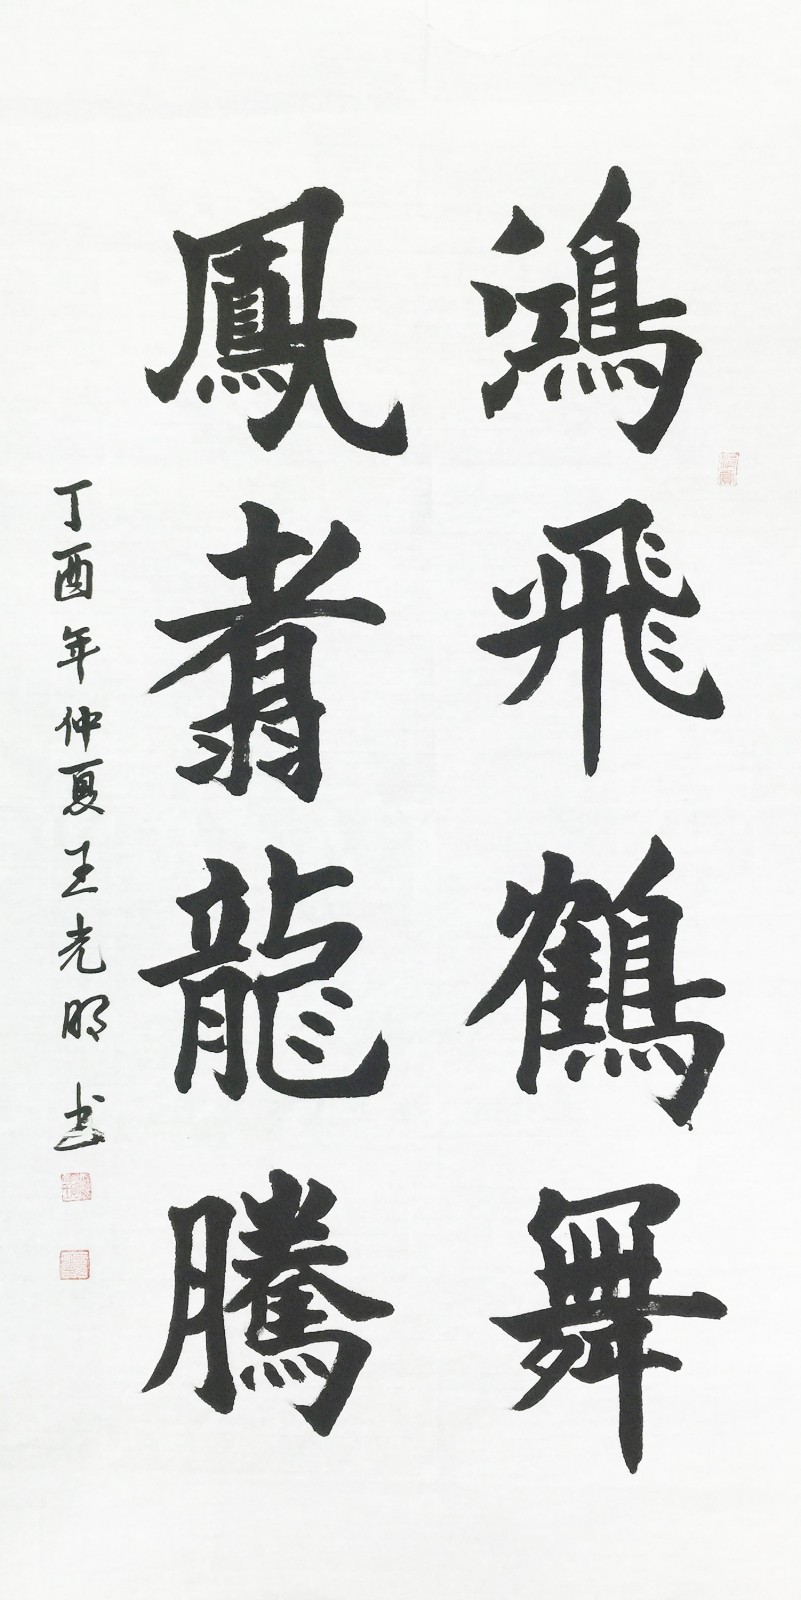 鴻飛鶴舞
鳳翥龍騰
丁酉年仲夏王光明书